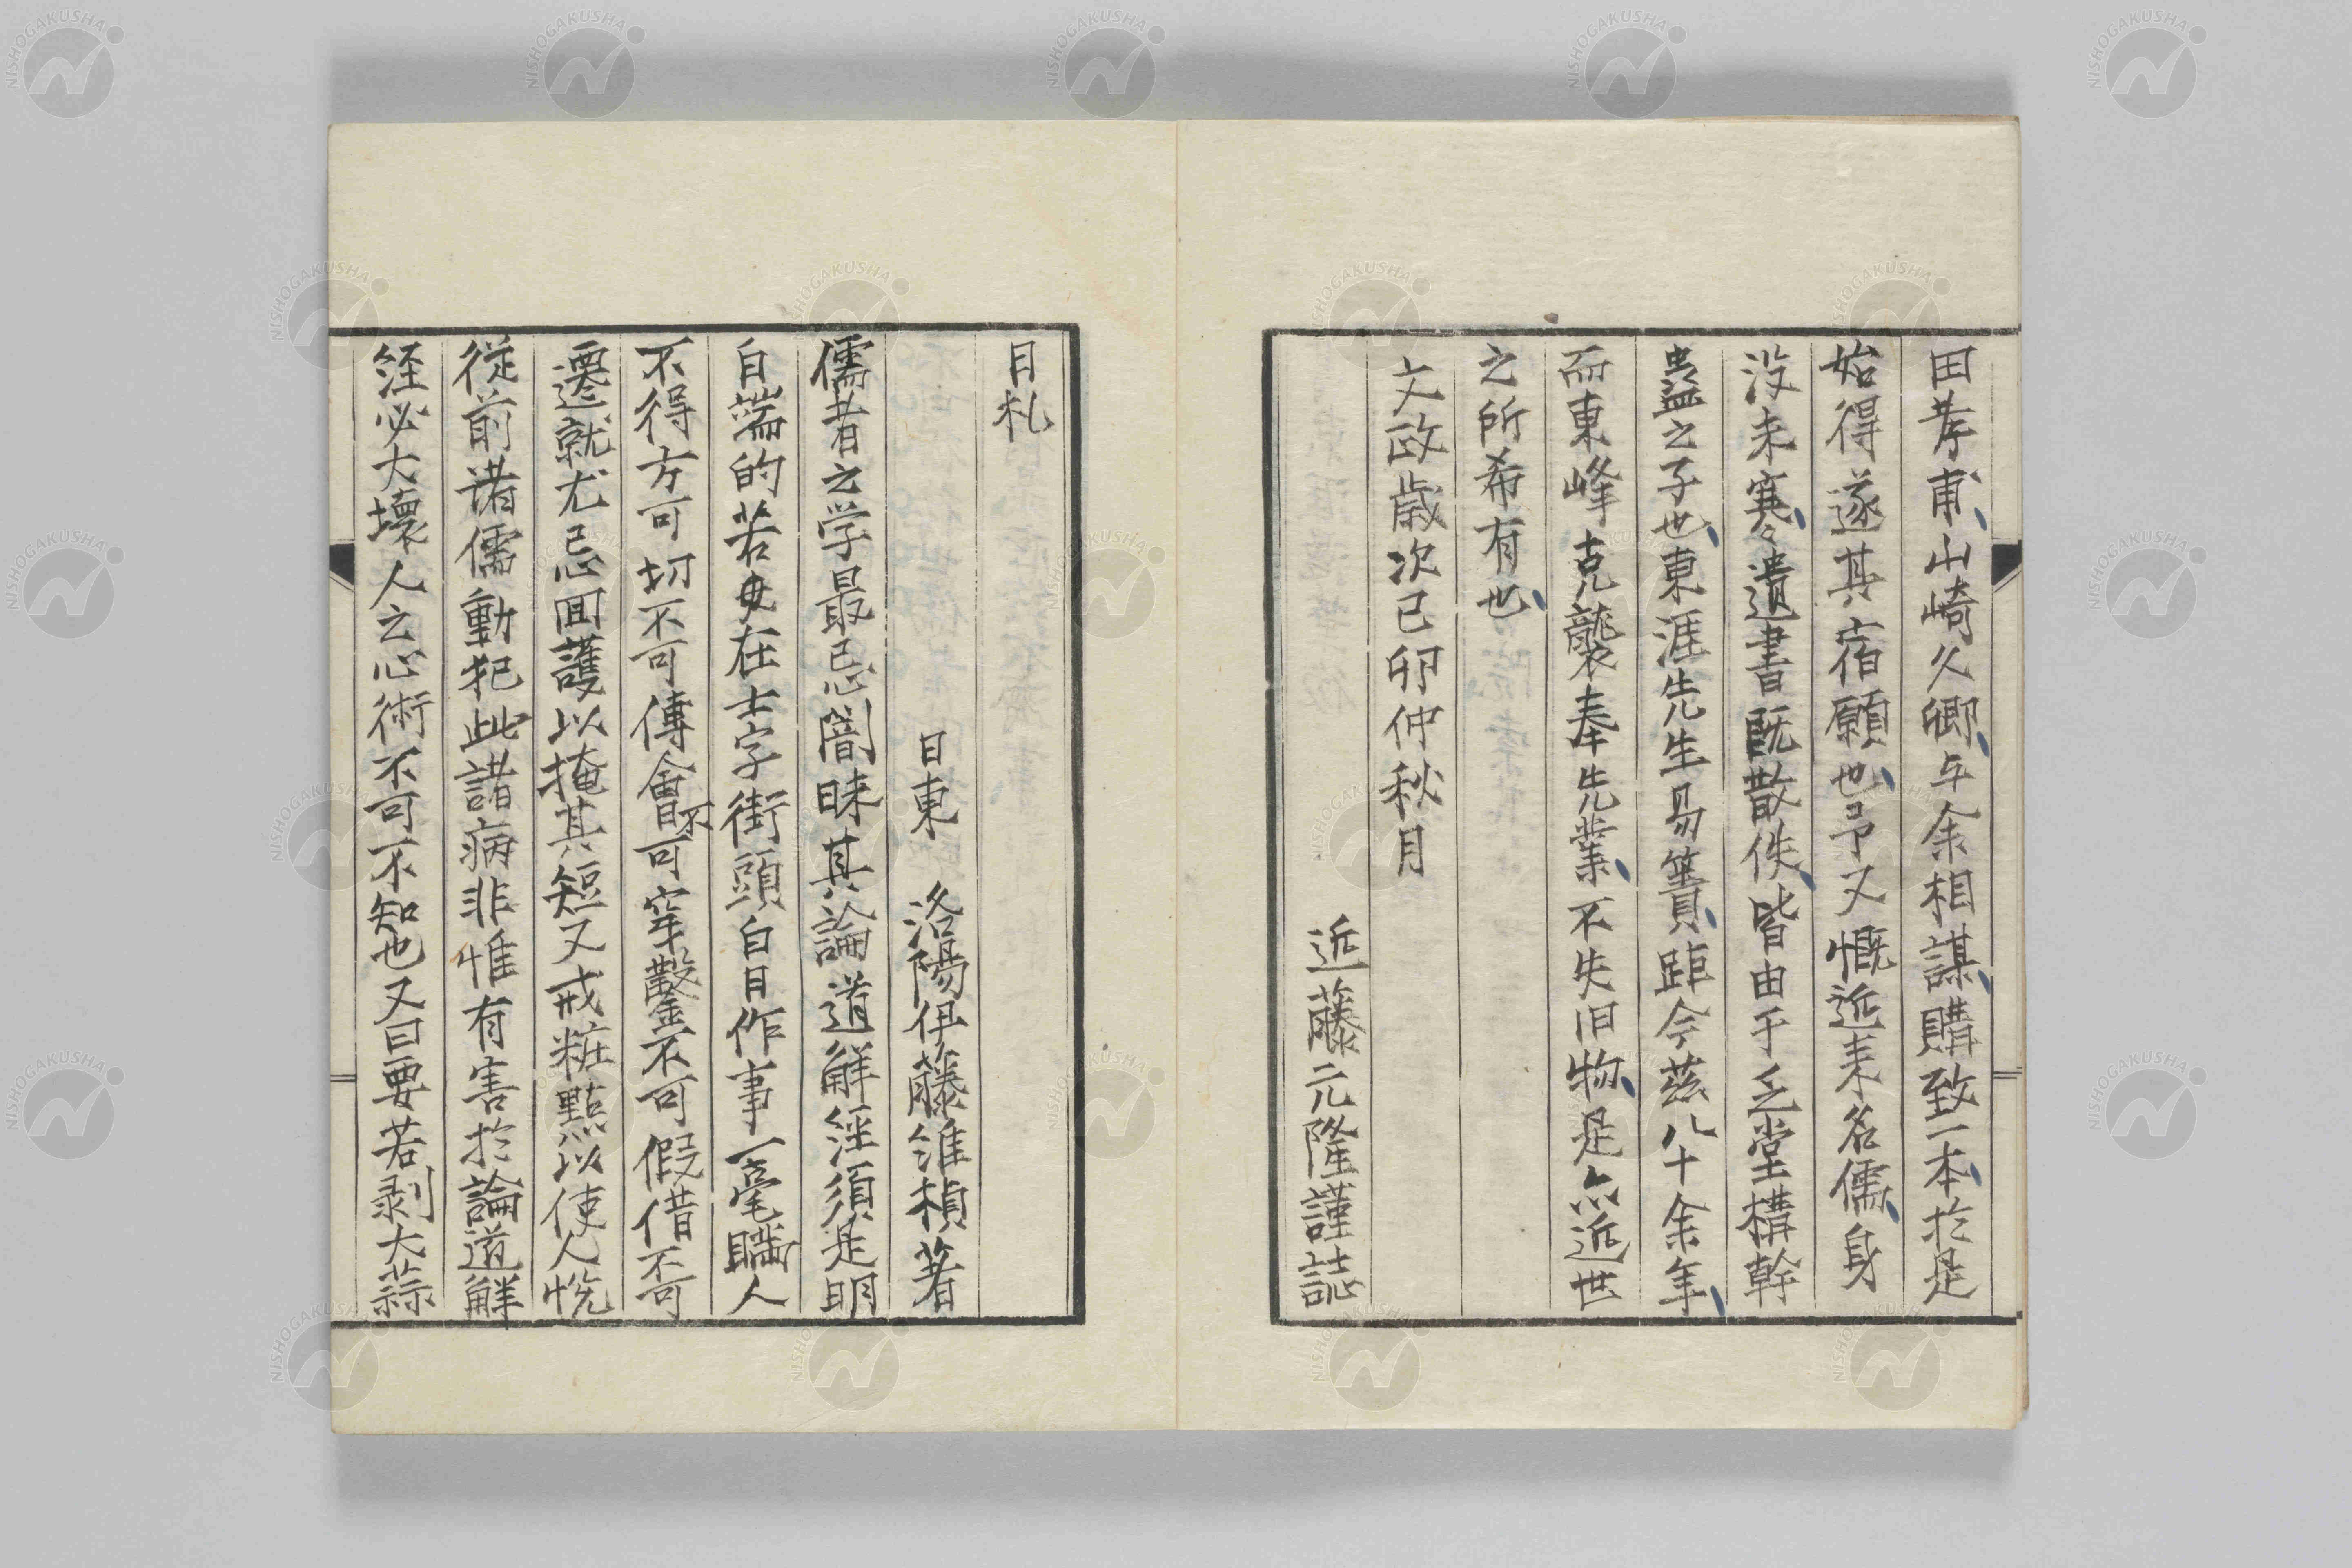 田孝甫山崎久卿与余相謀購致一本於是
始得遂其宿願也予又慨近来名儒身
没未寒遺書既散佚皆由乎乏堂構幹
蠱之子也東涯先生易簀距今茲八十余年
而東峰克襲奉先業不失旧物是亦近世
之所希有也
文政歳次己卯仲秋月
近藤元隆謹誌
日札
日東 洛陽伊藤維楨著
儒者之学最忌闇昧其論道解経須是明
白端的若在十字街頭白日作事一毫瞞人
不得方可切不可傅會不可穿鑿不可假借不可
遷就尤忌回護以掩其短又戒粧點以使人悦
従前諸儒動犯此諸病非惟有害於論道解
経必大壞人之心術不可不知也又曰要若剥大蒜
NISHOGAKUSHA